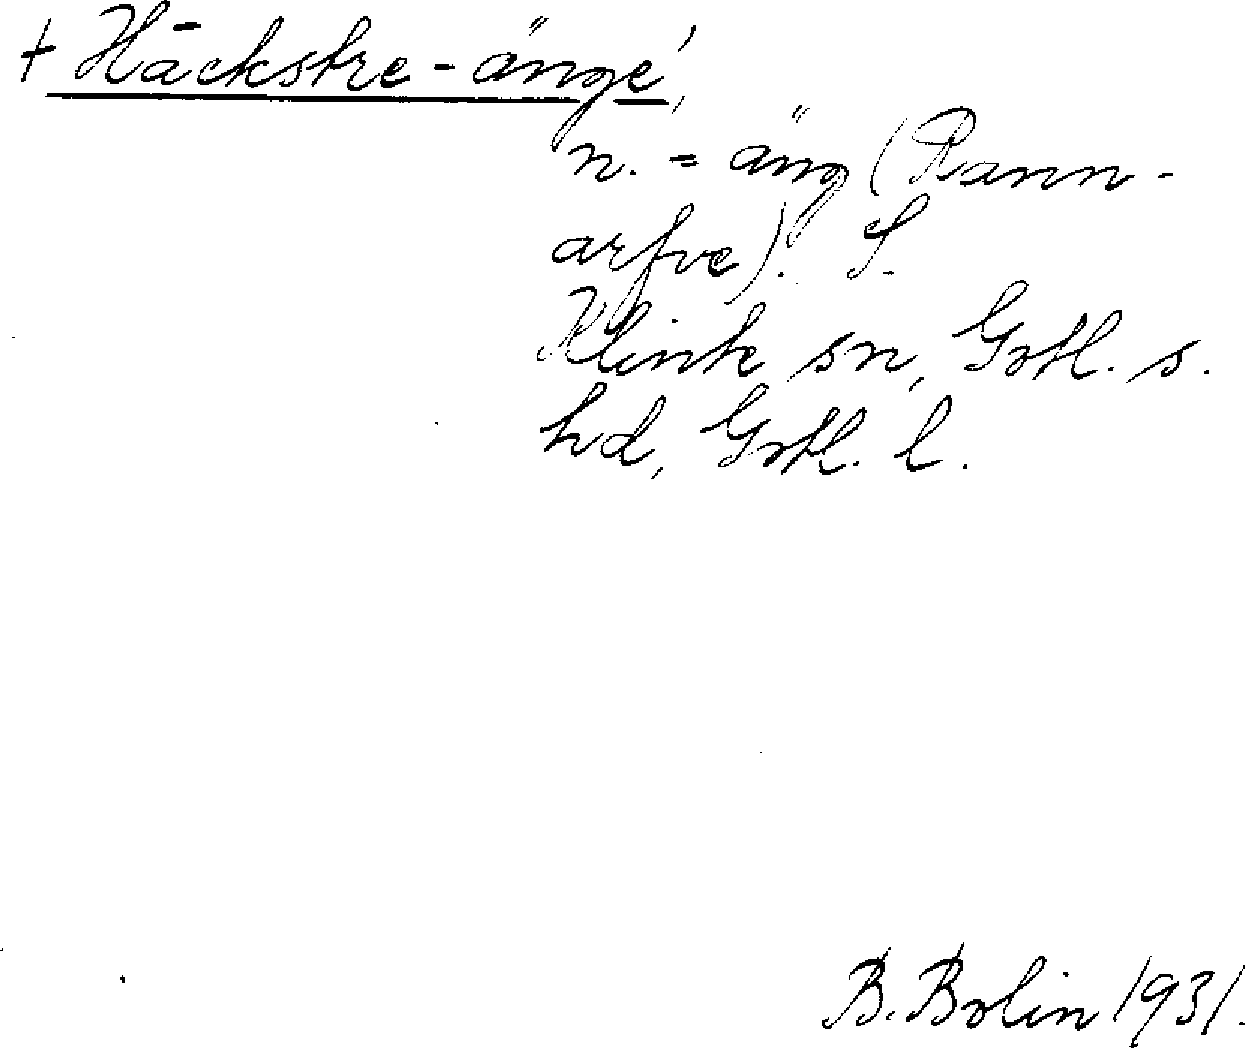 + Häckstre-änge,
n. = äng (Rann-
arfve). S.
Klinte sn, Gotl. s.
hd, Gotl. l.
B. Bolin 1931.